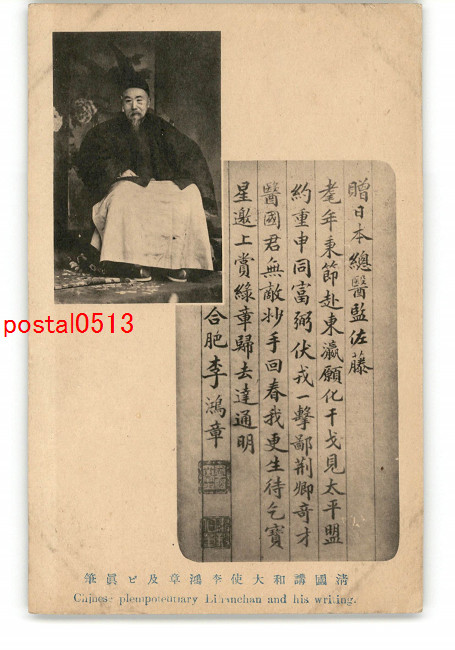 postal0513
贈日本總醫監佐藤
耄年秉節赴東瀛願化干戈見太平盟
約重申同富弼伏戎一擊鄙荆卿奇才
醫國君無敵妙手回春我更生待乞寶
星邀上賞緣章歸去達通明
合肥李鴻章
清國講和大使李鴻章及ヒ眞筆
Chinese plempotentiary Lihunchan and his writing.